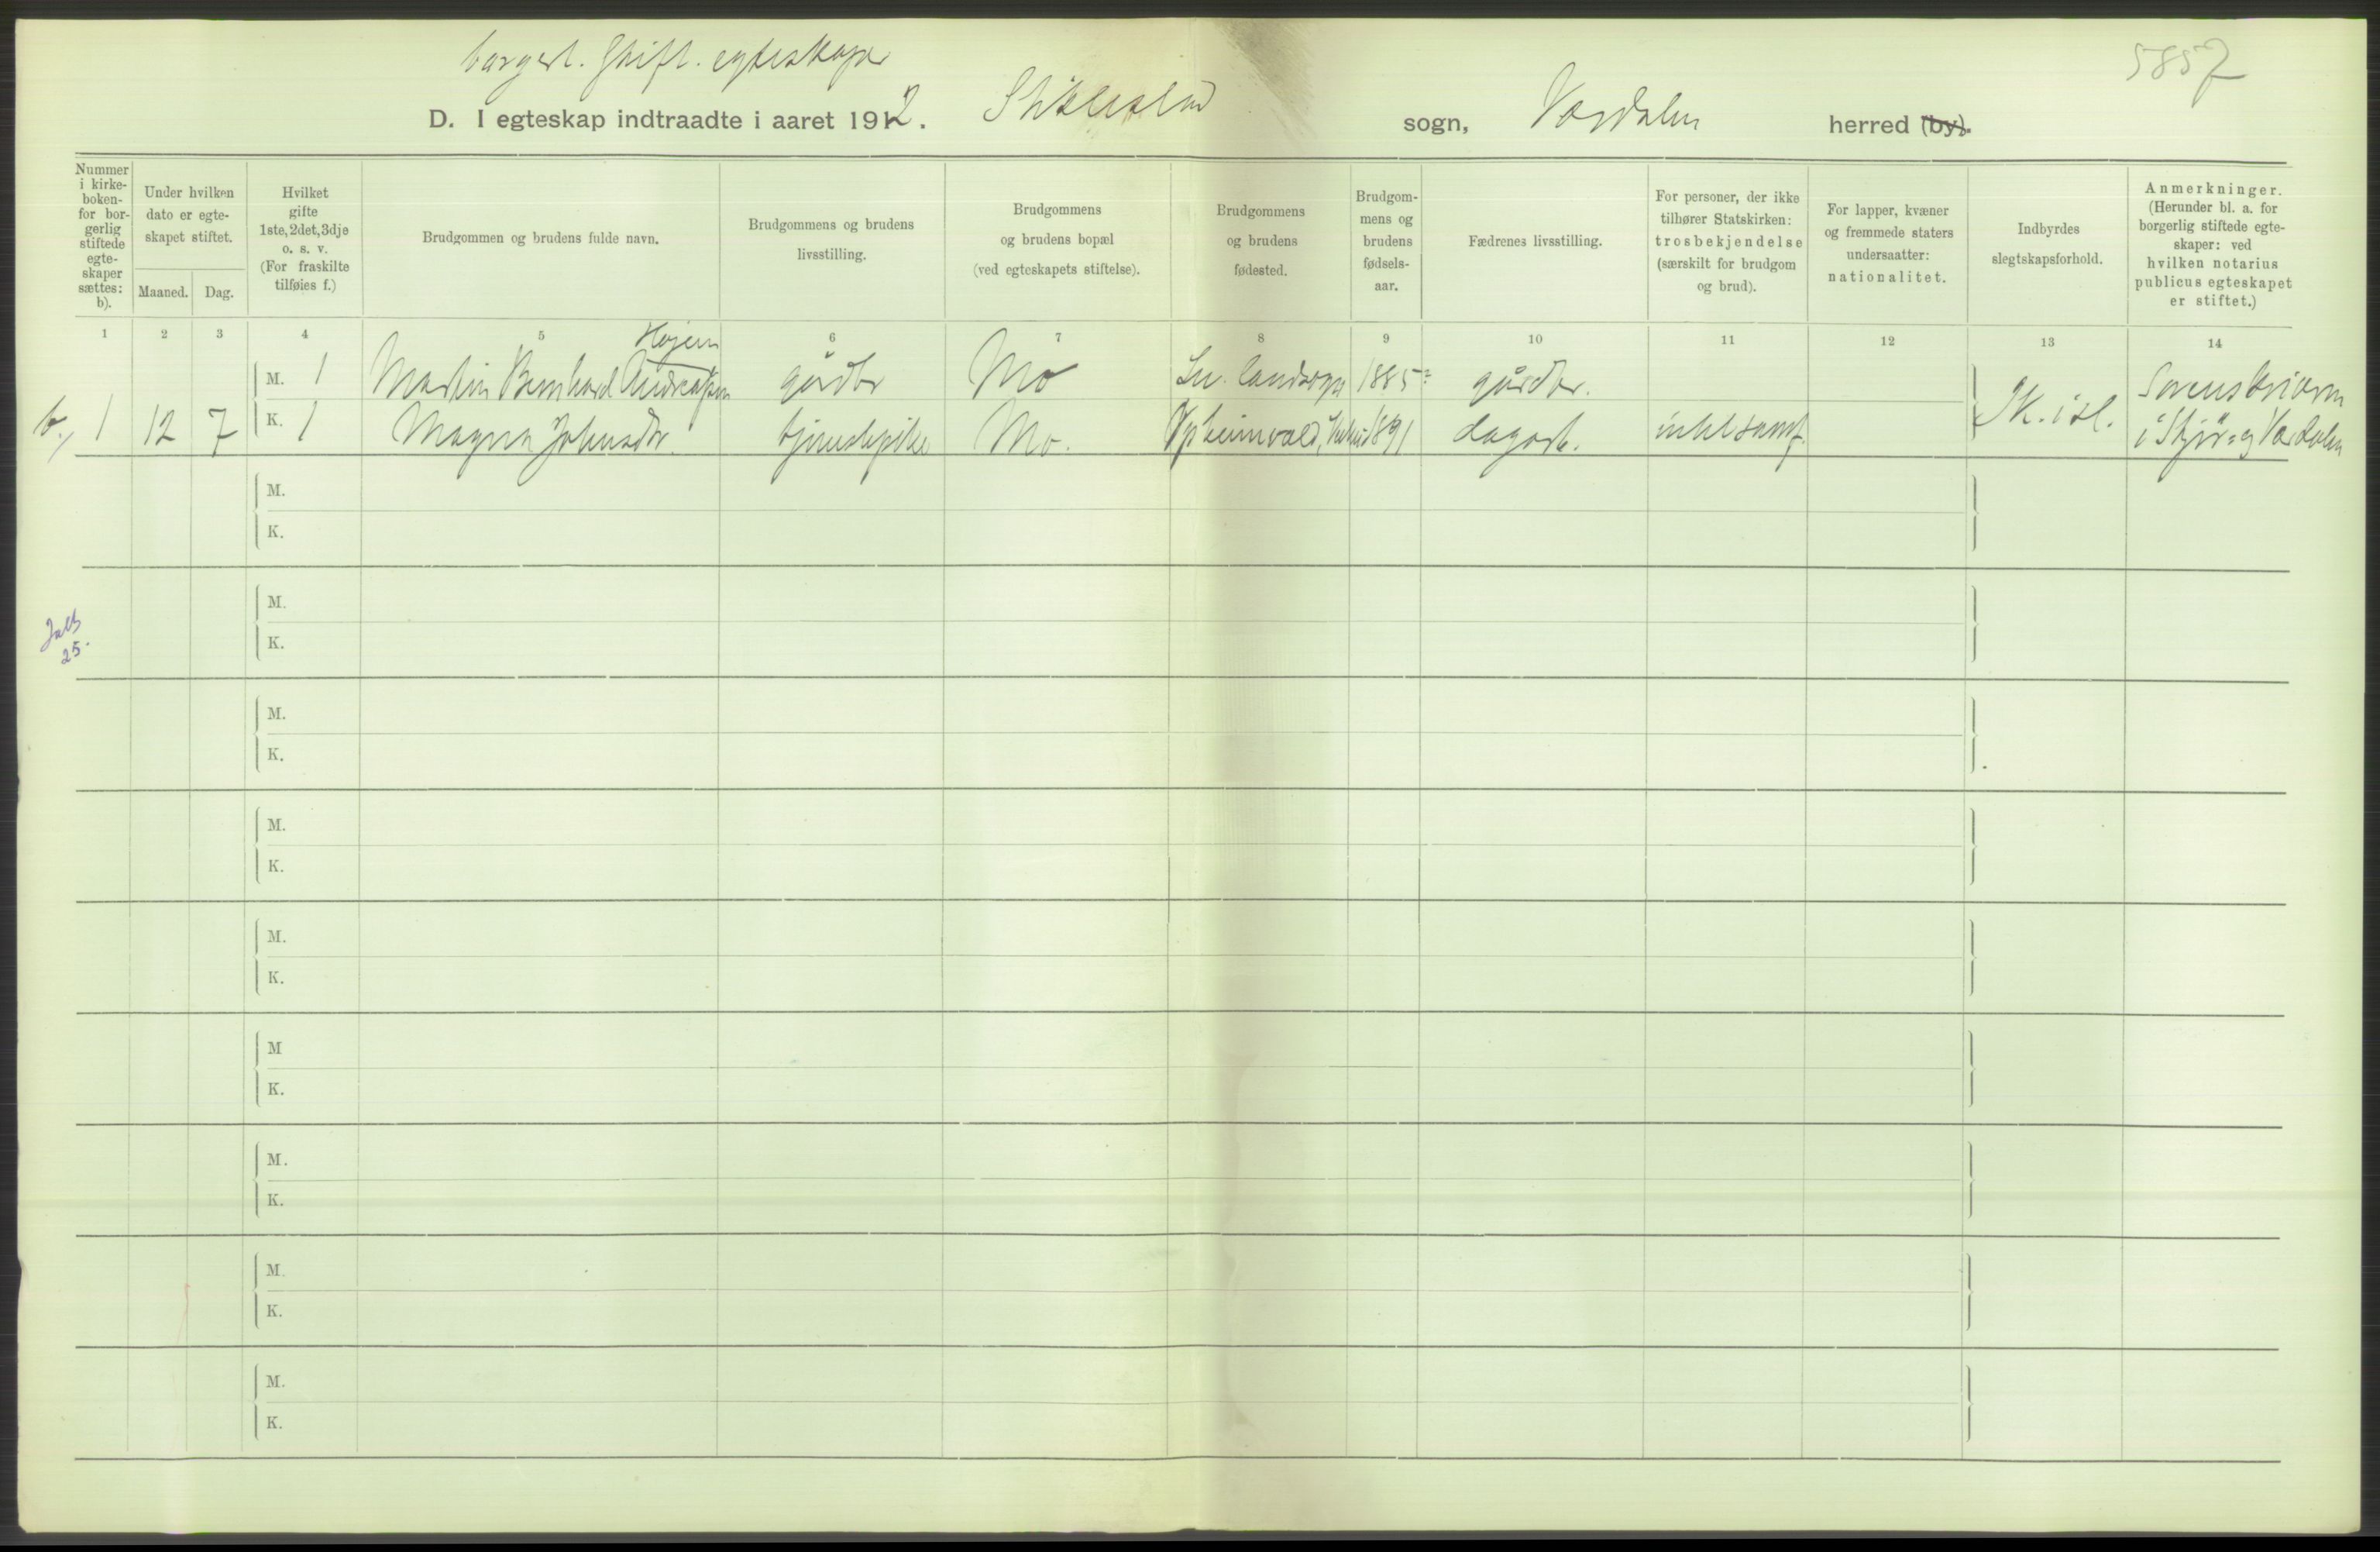 borgerl. stift. egteskaper
5857
D. I egteskap indtraadte i aaret 1912. Stiklestad sogn, Værdalen herred (by).
Nummer i kirkeboken- for borgerlig stiftede egteskaper sættes: b).
Under hvilken dato er egteskapet stiftet.
Maaned. Dag.
Hvilket gifte 1ste, 2det, 3dje o. s. v. (For fraskilte tilføies f.)
Brudgommen og brudens fulde navn.
Brudgommens og brudens livsstilling.
Brudgommens og brudens bopæl (ved egteskapets stiftelse).
Brudgommens og brudens fødested.
Brudgommens og brudens fødselsaar.
Fædrenes livsstilling.
For personer, der ikke tilhører Statskirken: trosbekjendelse (særskilt for brudgom og brud).
For lapper, kvæner og fremmede staters undersaatter: nationalitet.
Indbyrdes slegtskapsforhold.
Anmerkninger. (Herunder bl. a. for borgerlig stiftede egteskaper: ved hvilken notarius publicus egteskapet er stiftet.)
1 2 3 4 5 6 7 8 9 10 11 12 13 14
Højem
M. 1 Martin Bernhard Andreassen gårdbr Mo Lev. landsogn 1885 gårdbr. Sorenskriveren
b., 1 12 7 K. 1 Magna Johnsdtr. tjenestepike Mo. 1891 dagarb. i Stjør- og Værdalen
M.
K.
M.
K.
25.
M.
K.
M.
K.
M.
K.
M
K.
M.
K.
M.
K.
M.
K.